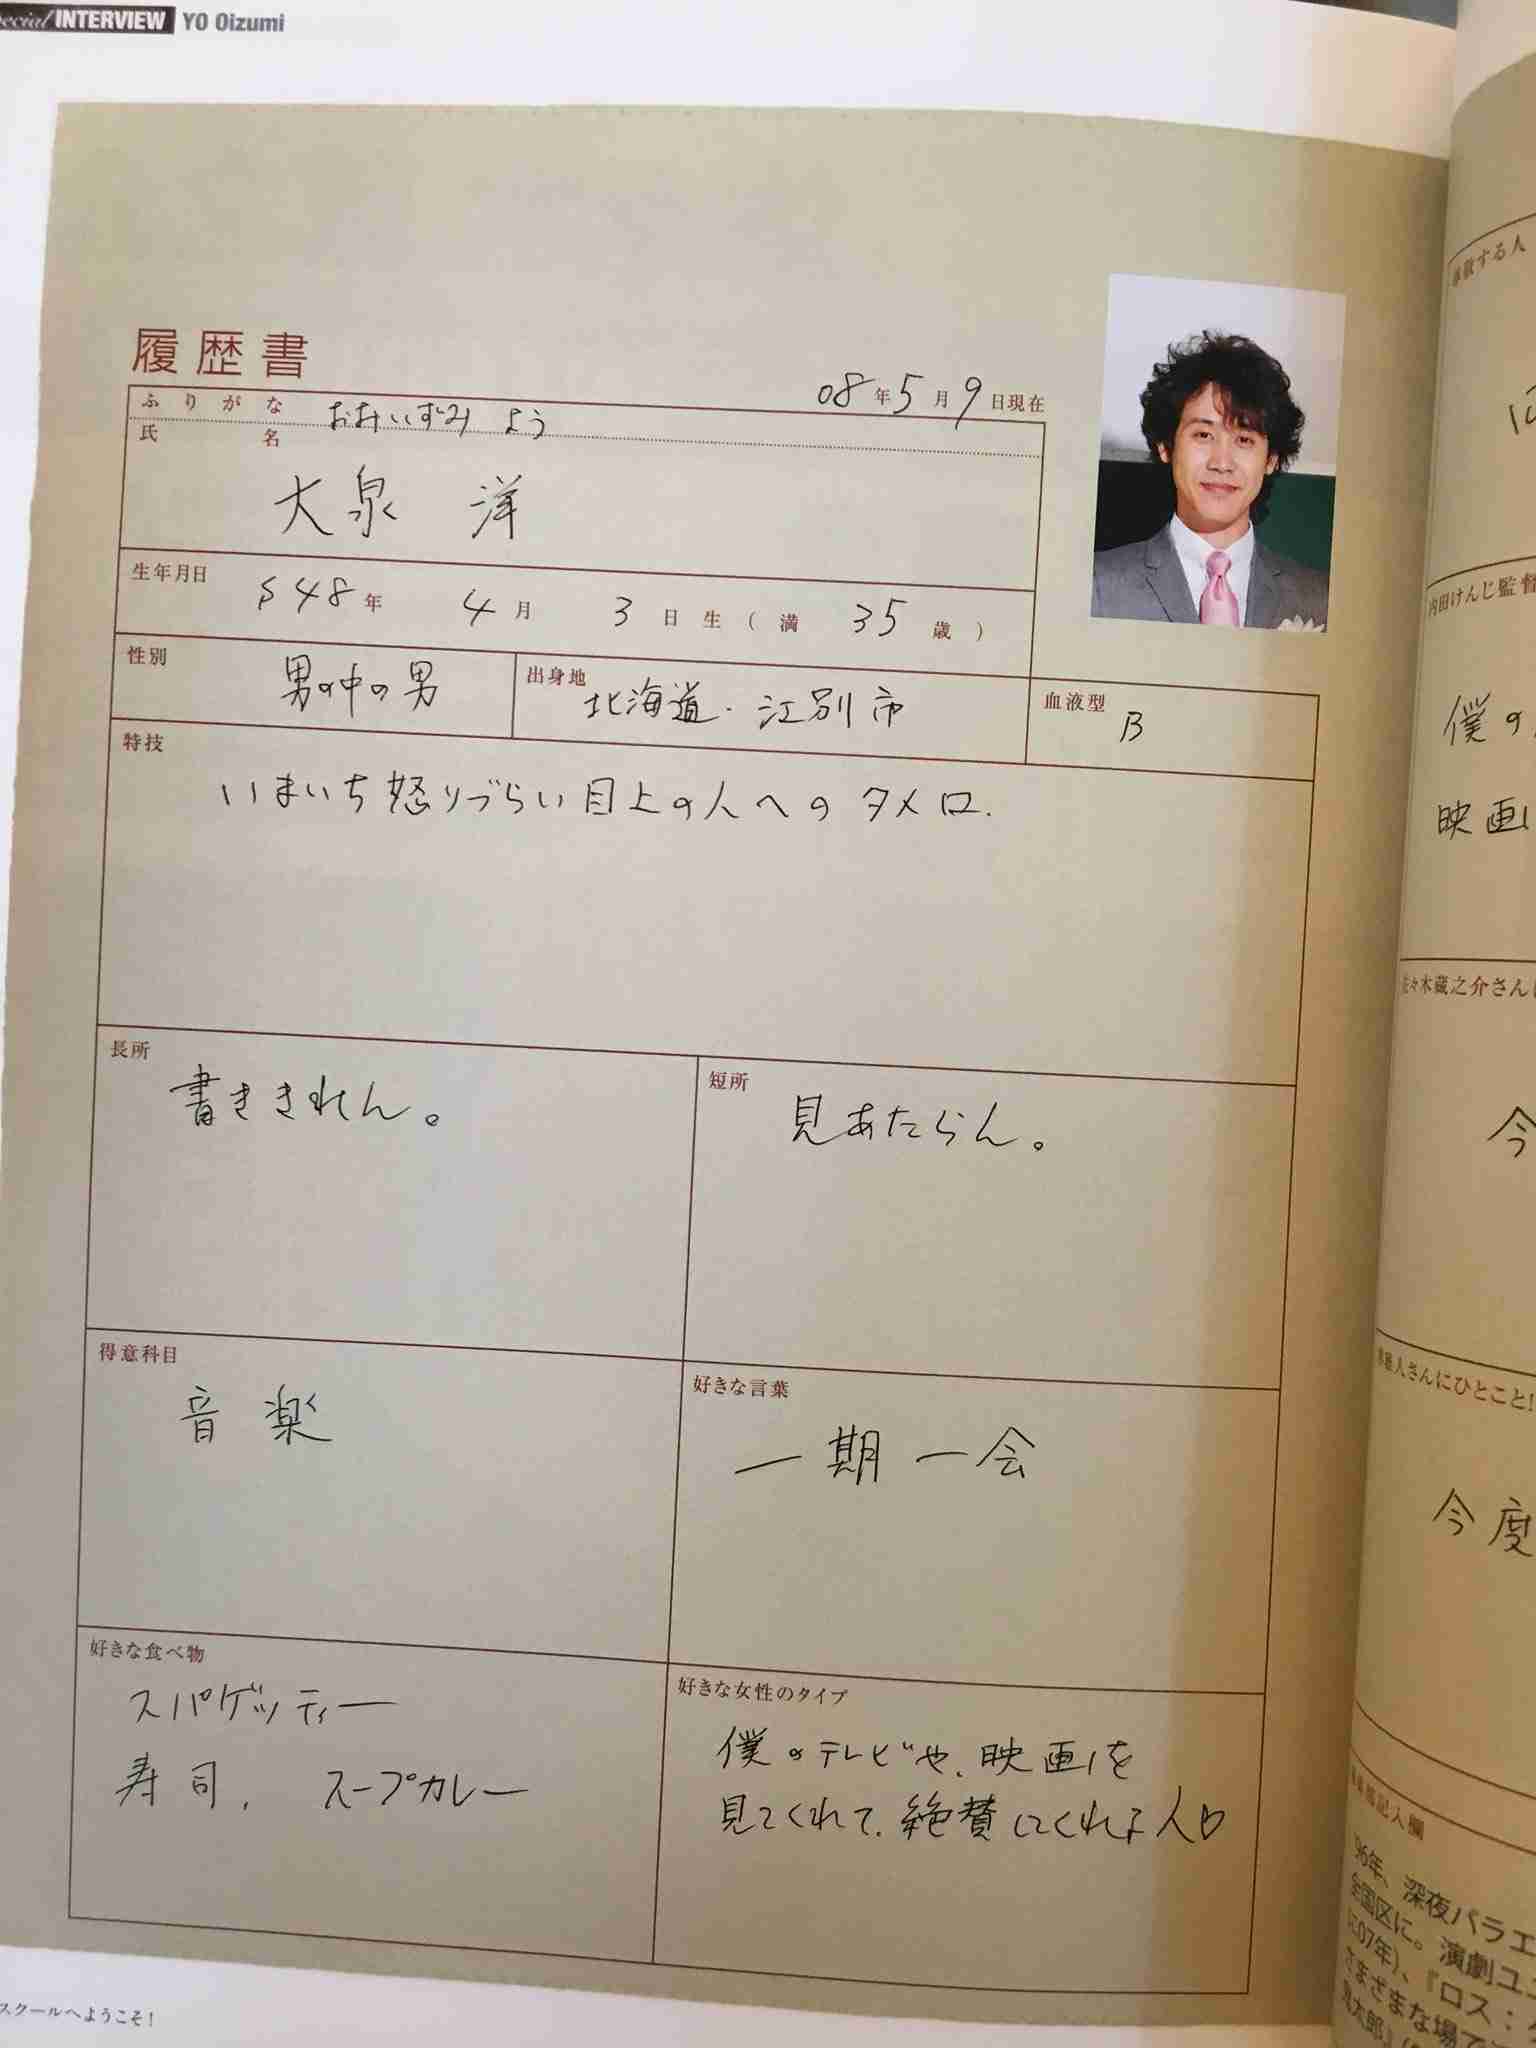 INTERVIEW YO Oizumi
履歴書
08年5月9日現在
ふりがな おおいずみ よう
氏名
大泉 洋
生年月日 S48年 4月 3日生(満 35歳)
性別 男の中の男
出身地 北海道・江別市
血液型 B
特技
いまいち怒りづらい目上の人へのタメ口.
長所
書ききれん。
短所
見あたらん。
得意科目
音楽
好きな言葉
一期一会
好きな食べ物
スパゲッティー
寿司, スープカレー
好きな女性のタイプ
僕のテレビや、映画を
見てくれて、絶賛してくれる人♡
スクールへようこそ!
尊敬する人
内田けんじ監督
僕の
映画
佐々木蔵之介さんに
今
雅人さんにひとこと!
今度
記入欄
'96年、深夜バラエ
全国区に。演劇ユ
に07年)、『ロス:
さまざまな場で
鬼太郎』(